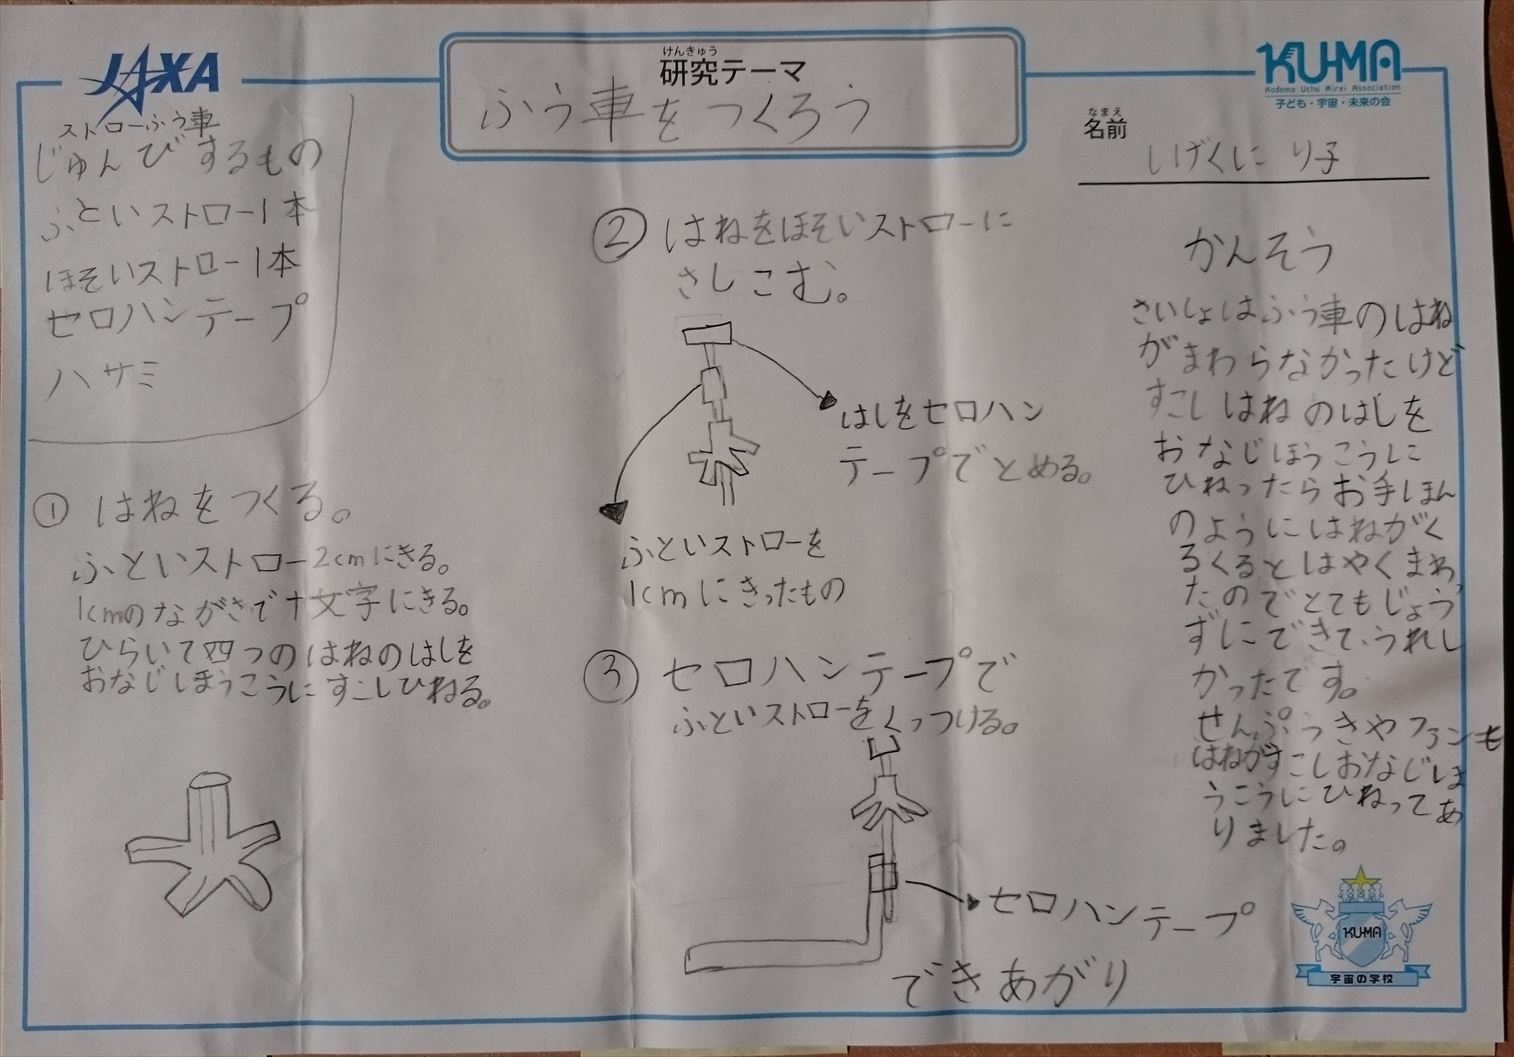 JAXA
けんきゅう
研究テーマ
ふう車をつくろう
KU-MA
Kodomo Uchu Mirai Association
子ども・宇宙・未来の会
なまえ
名前
しげくに り子
ストローふう車
じゅんびするもの
ふといストロー1本
ほそいストロー1本
セロハンテープ
ハサミ
① はねをつくる。
ふといストロー2cmにきる。
1cmのながさで十文字にきる。
ひらいて四つのはねのはしを
おなじほうこうにすこしひねる。
② はねをほそいストローに
さしこむ。
はしをセロハン
テープでとめる。
ふといストローを
1cmにきったもの
③ セロハンテープで
ふといストローをくっつける。
セロハンテープ
できあがり
かんそう
さいしょはふう車のはね
がまわらなかったけど
すこしはねのはしを
おなじほうこうに
ひねったらお手ほん
のようにはねがく
るくるとはやくまわっ
たのでとてもじょう
ずにできて、うれし
かったです。
せんぷうきやファンも
はねがすこしおなじほ
うこうにひねってあ
りました。
KU-MA
宇宙の学校